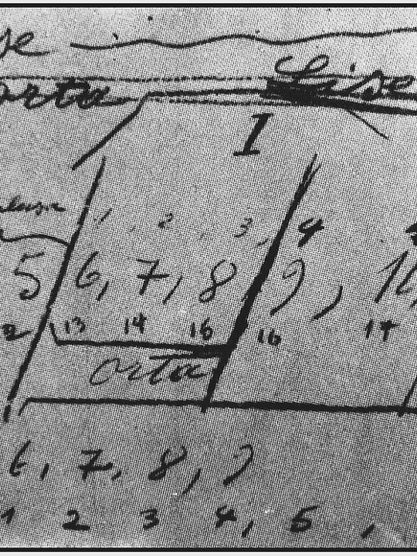 se
orta Lise
I
1 2 3 4
5 6, 7, 8 9, 10
2 13 14 15 16 17
orta
6, 7, 8, 9
1 2 3 4, 5,